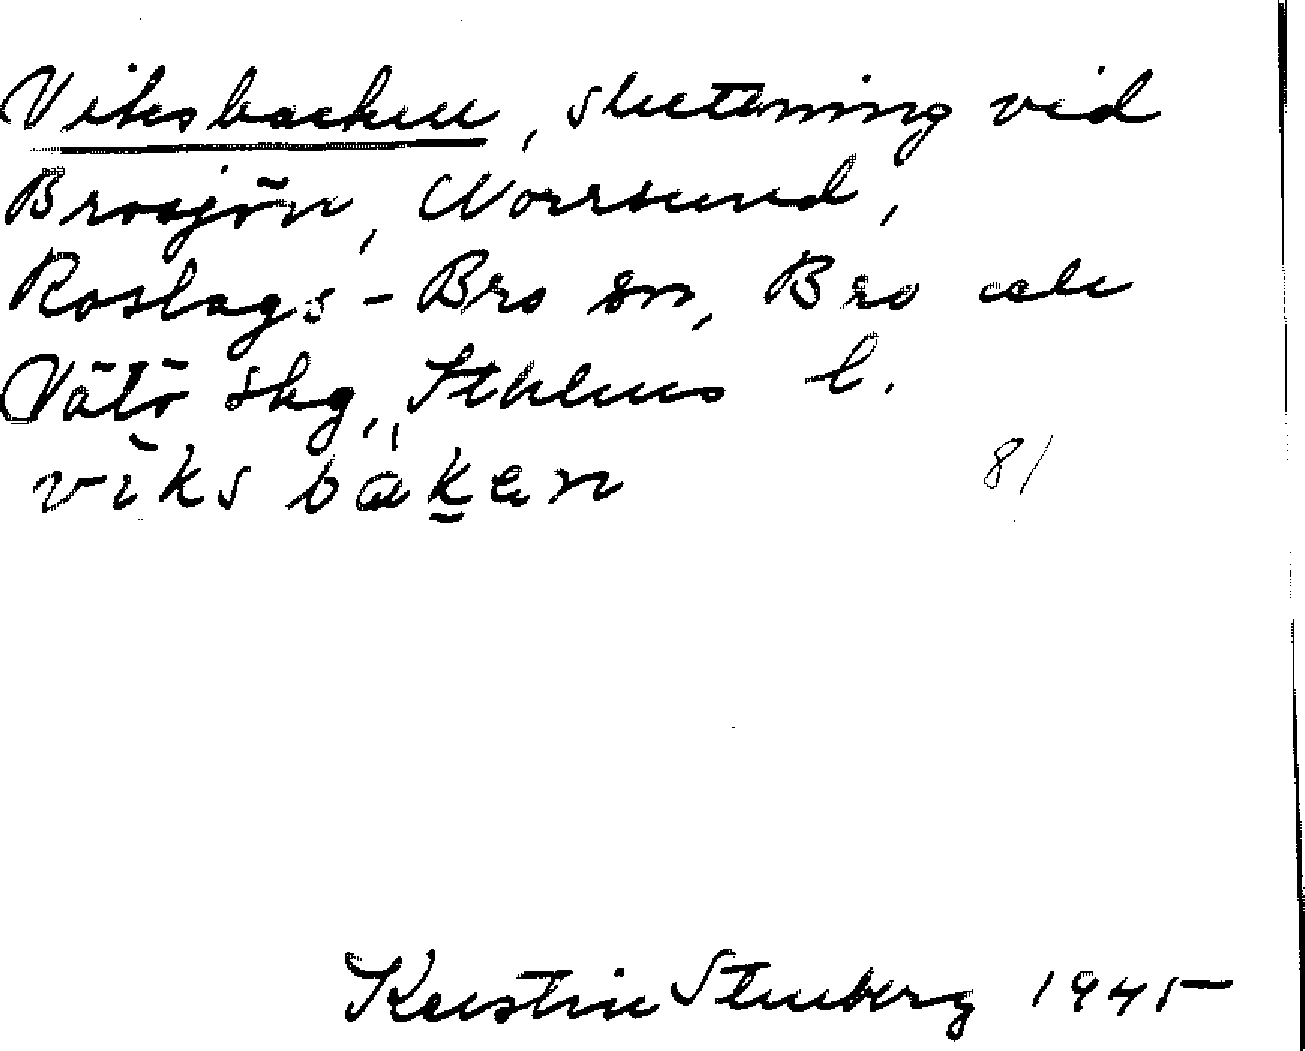 Viksbacken, sluttning vid
Brosjön, Norrsund,
Roslags-Bro sn, Bro och
Vätö skg, Sthlms l.
vìks bàk̲en 81
Kerstin Stenberg 1945